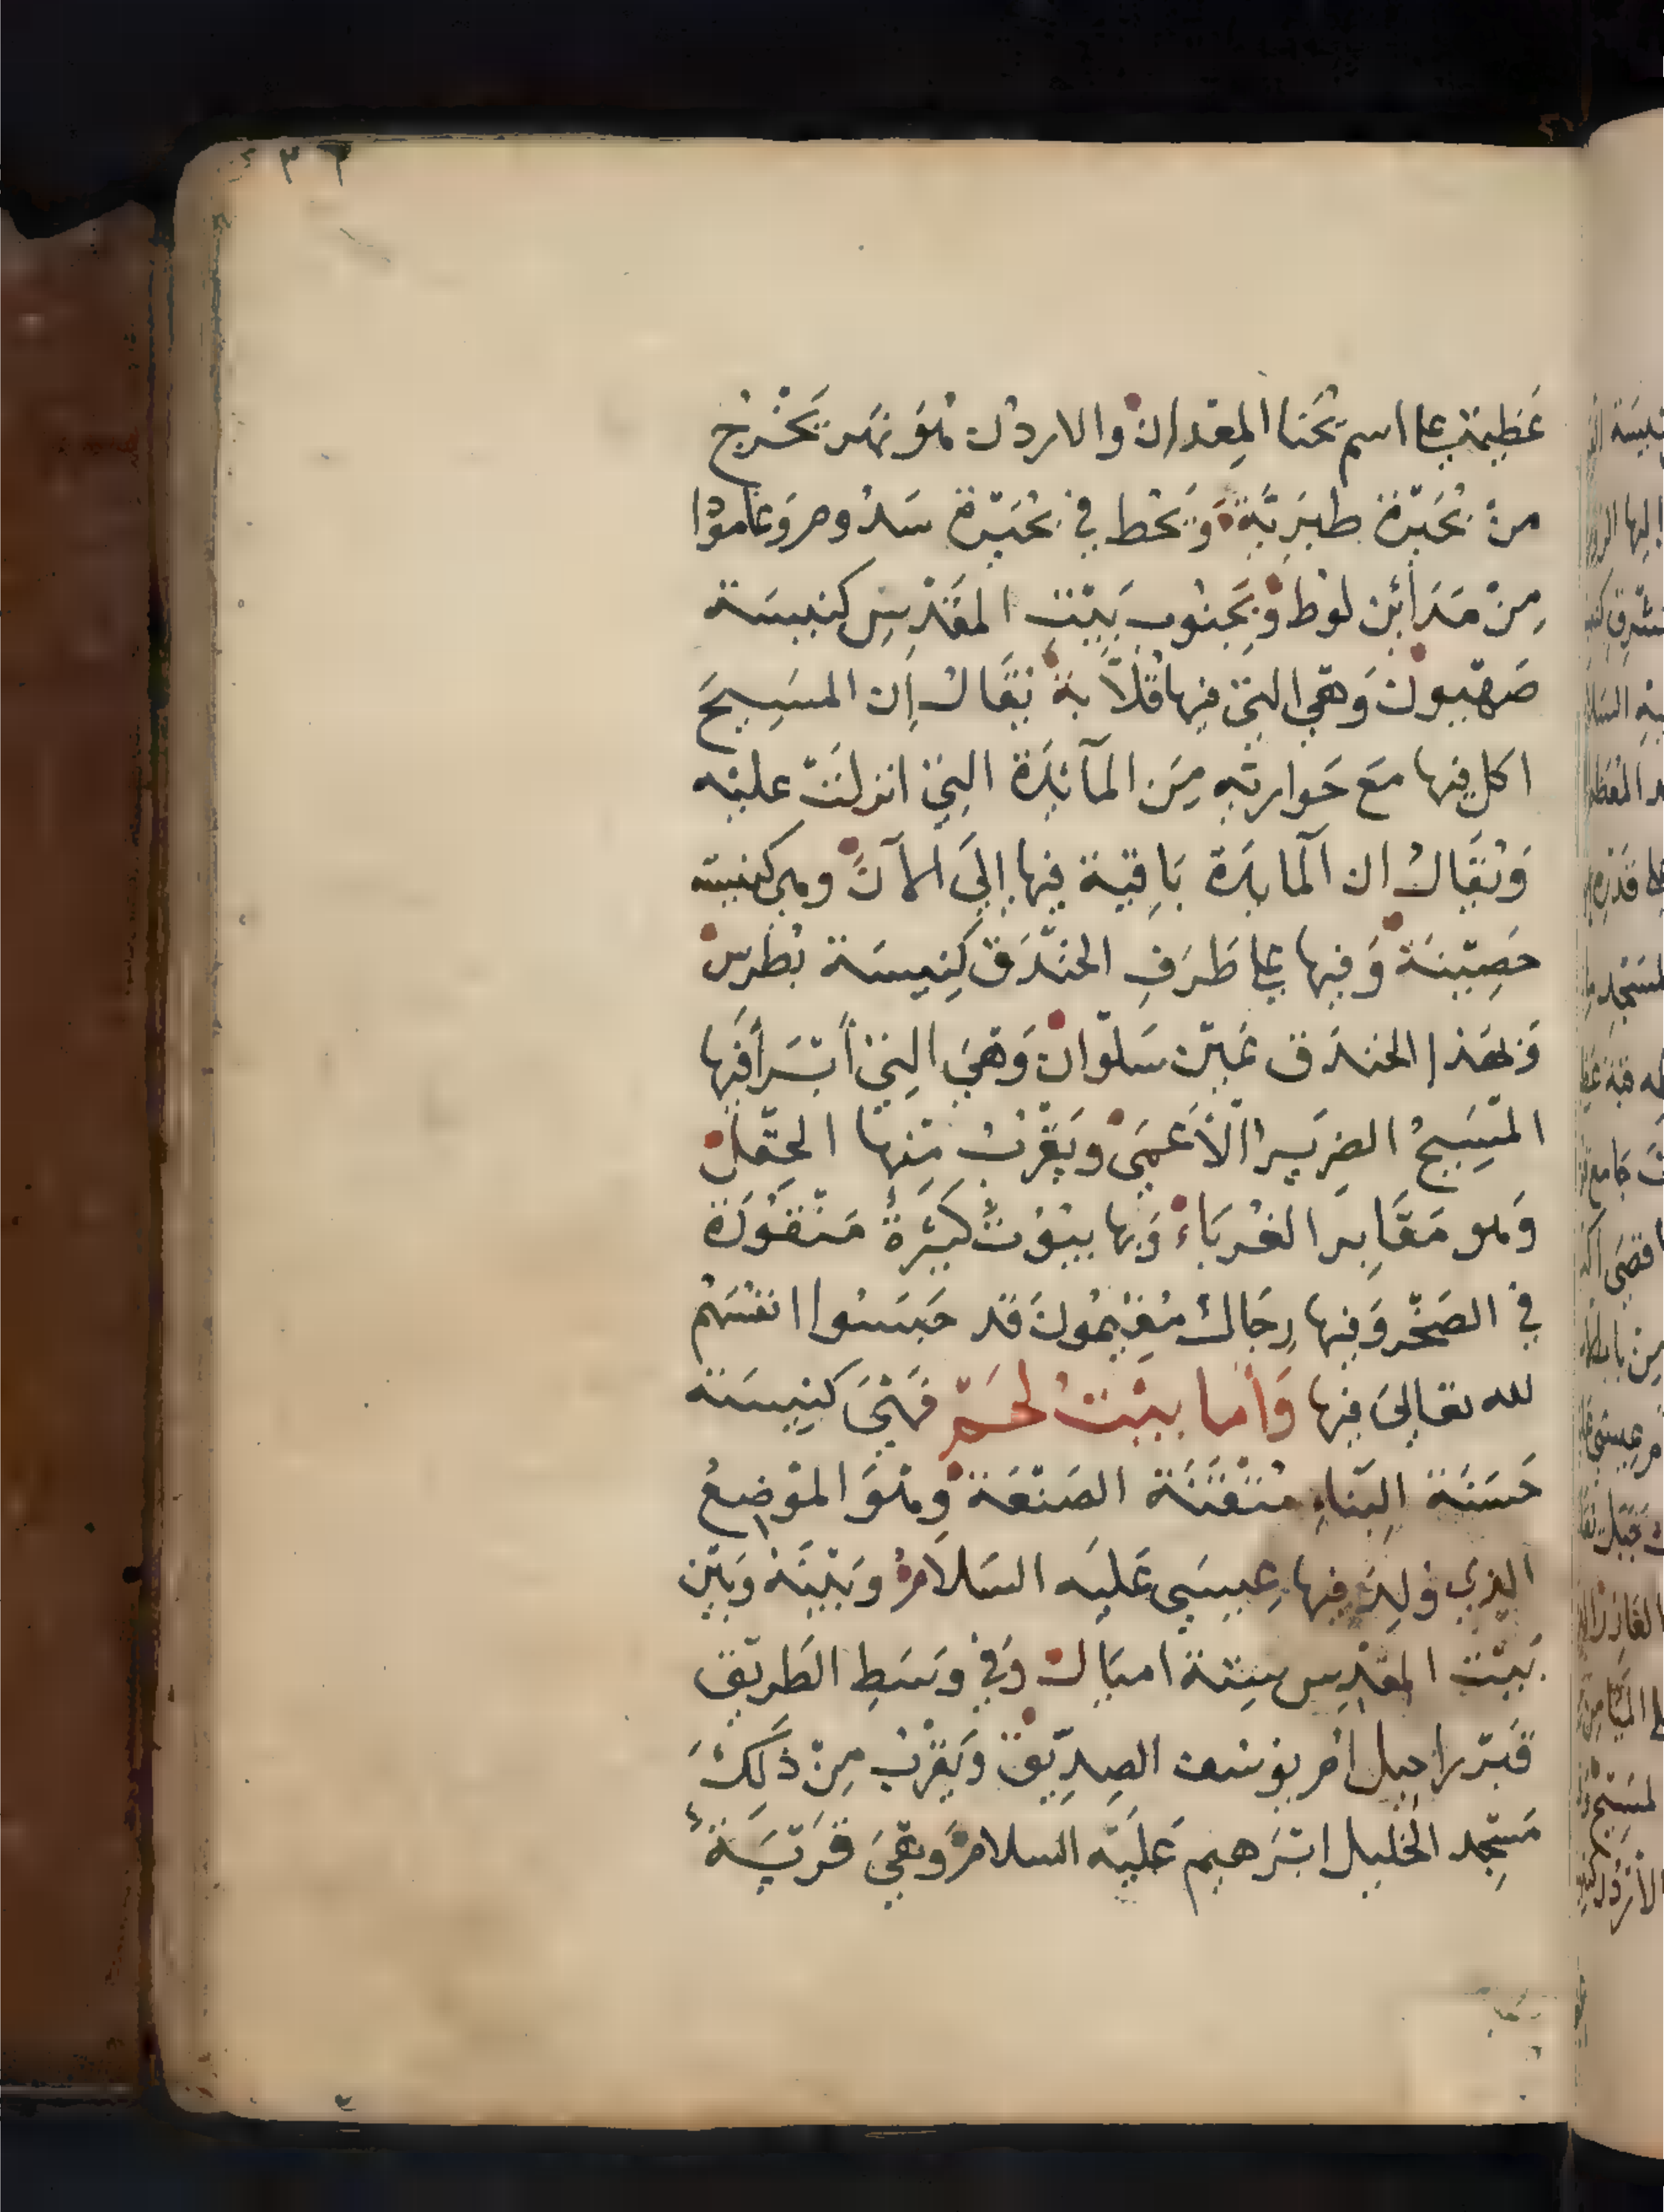 ٢٣٦
عَظِيمَة على اسم يُحَنا المِعْمدان والاردن هُوَ نَهر يَخْرُج
من بُحَيْرة طبَرِيَّة وَيَحُط في بُحَيْرة سَدُوم وَعَامورا
مِنْ مَدَائِن لوط وَبِجَنُوب بَيْتِ المَقْدِسِ كنيسَة
صَهيون وَهي التي فيها قلّاية يُقَال إن المسَيحَ
اكل فيها مَعَ حَواريّه مِنَ المآئِدَة التي انزلَتْ عليْه
وَيُقَال ان المايدَة بَاقِية فيها إلىَ الآنَ وهي كنيسة
حَصِينَة وَفيها على طَرَفِ الخنْدَق كَنِيسَة بُطرس
وَبهَذا الخندَق عَيْن سَلْوان وَهيَ التي أَبْرَأ فيها
المَسِيحُ الضرير الأَعمىَ وَيَقْرُبُ مِنها الحقل
وَهو مَقَابِر الغُرَبَاء وَبها بيُوتٌ كَثيرَةٌ مَنْقورَة
في الصَخْر وَفيها رِجَالٌ مُقِيْمُونَ قد حَبسُوا انفُسَهُم
لله تعَالىَ فيها وَأما بيْتُ لحَم فهيَ كنِيسَة
حَسَنَة البنَاءِ مُتْقَنَة الصَنْعَة وَهُوَ المَوْضِعُ
الذي وُلِدَ فيها عِيسَى عَليْه السَلَام وَبَيْنَهُ وَبَيْن
بَيْت المقْدِس سِتة اميَال وَفي وَسَطِ الطَريْق
قَبْر راحيل ام يوسُف الصِدِّيْق وَيَقْرُب مِنْ ذَلِكَ
مَسْجِد الخليل ابْرَهيم عَليْه السلام وَهيَ قَرْيَة